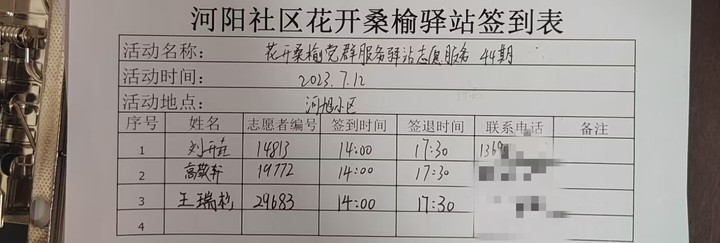 河阳社区花开桑榆驿站签到表
活动名称： 花开桑榆党群服务驿站志愿服务 44期
活动时间： 2023.7.12
活动地点： 河旭小区
序号 姓名 志愿者编号 签到时间 签退时间 联系电话 备注
1 刘开 14813 14:00 17:30 1369
2 高敬轩 19772 14:00 17:30
3 王瑞杉 29683 14:00 17:30
4